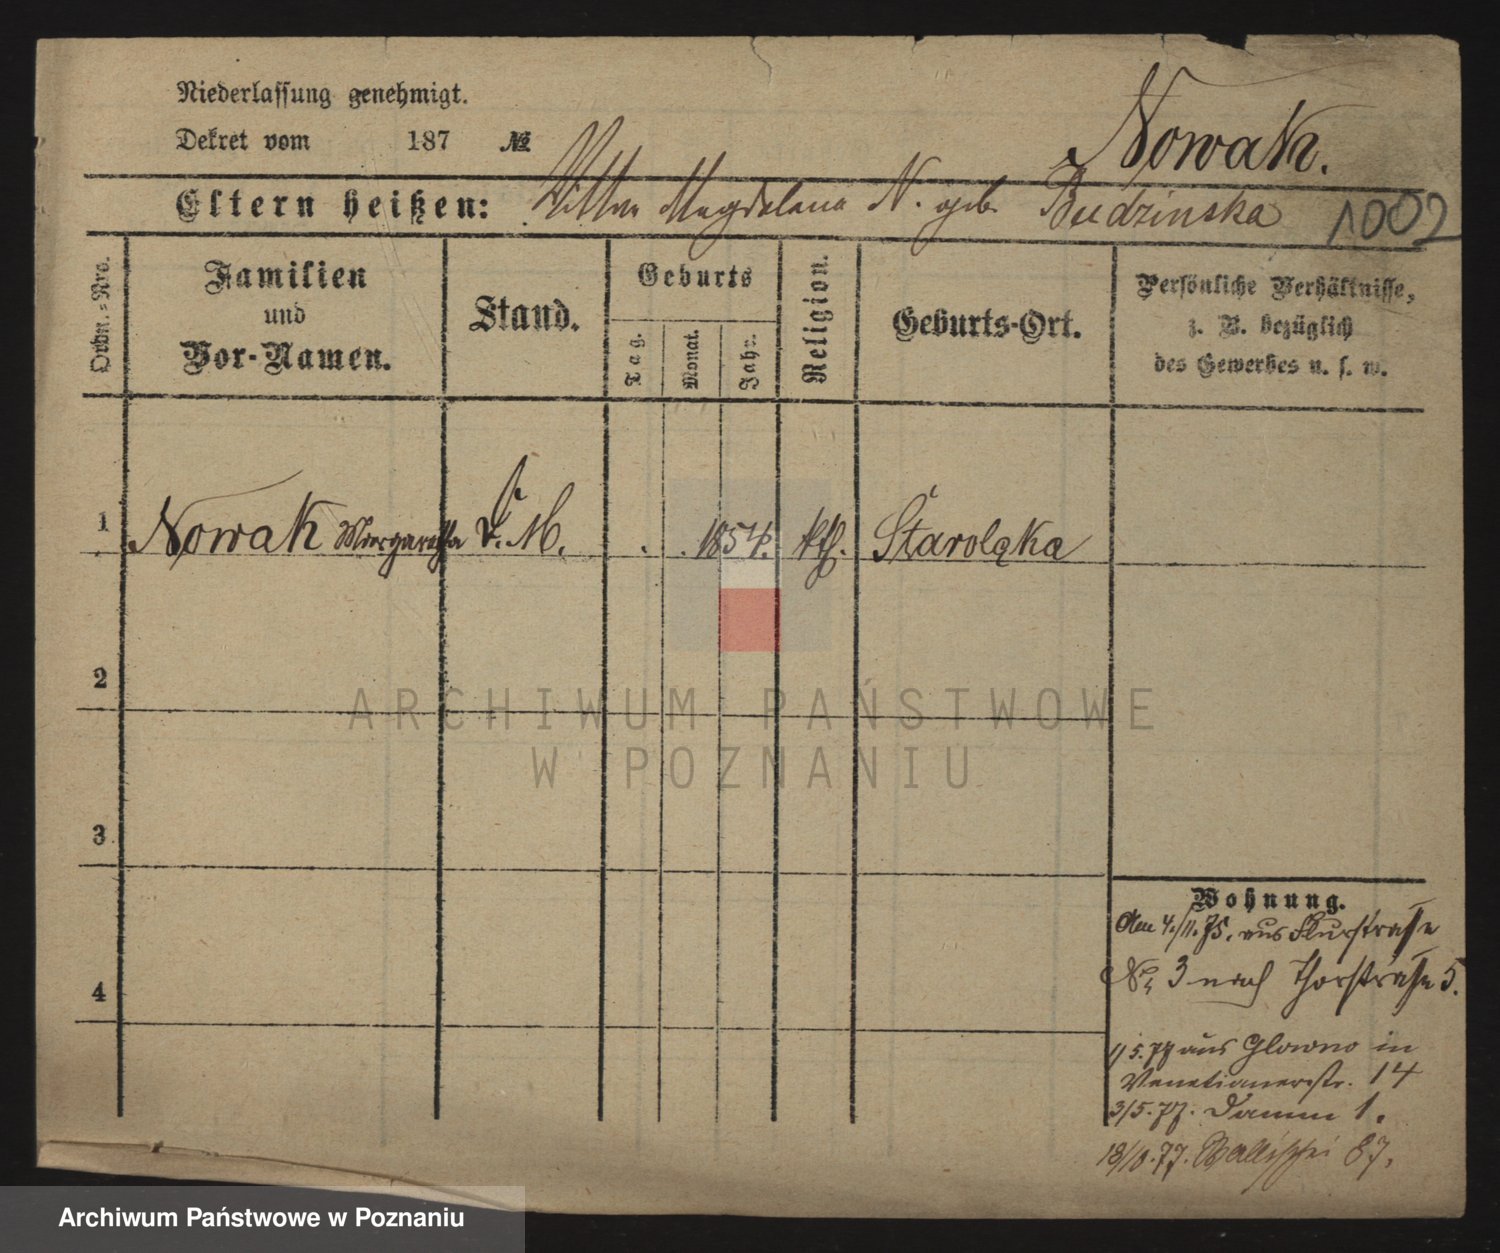 Niederlassung genehmigt.
Dekret vom 187 №
Nowak.
Eltern heißen: Magdalena N. geb. Budzinska
1002
Ordn.-Nro.
Familien
und
Vor-Namen.
Stand.
Geburts
Tag.
Monat.
Jahr.
Religion.
Geburts-Ort.
Persönliche Verhältnisse,
z. B. bezüglich
des Gewerbes u. s. w.
1 Nowak Margaretha D. M. 1854. kth. Starołąka
2
3
4
Wohnung.
Am 4./11.75. aus Flurstraße
No 3 nach Thorstraße 5.
1/5.77 aus Glowno in
Venetianerstr. 14
3/5.77. Damm 1.
Wallischei 87.
ARCHIWUM PAŃSTWOWE
W POZNANIU
Archiwum Państwowe w Poznaniu